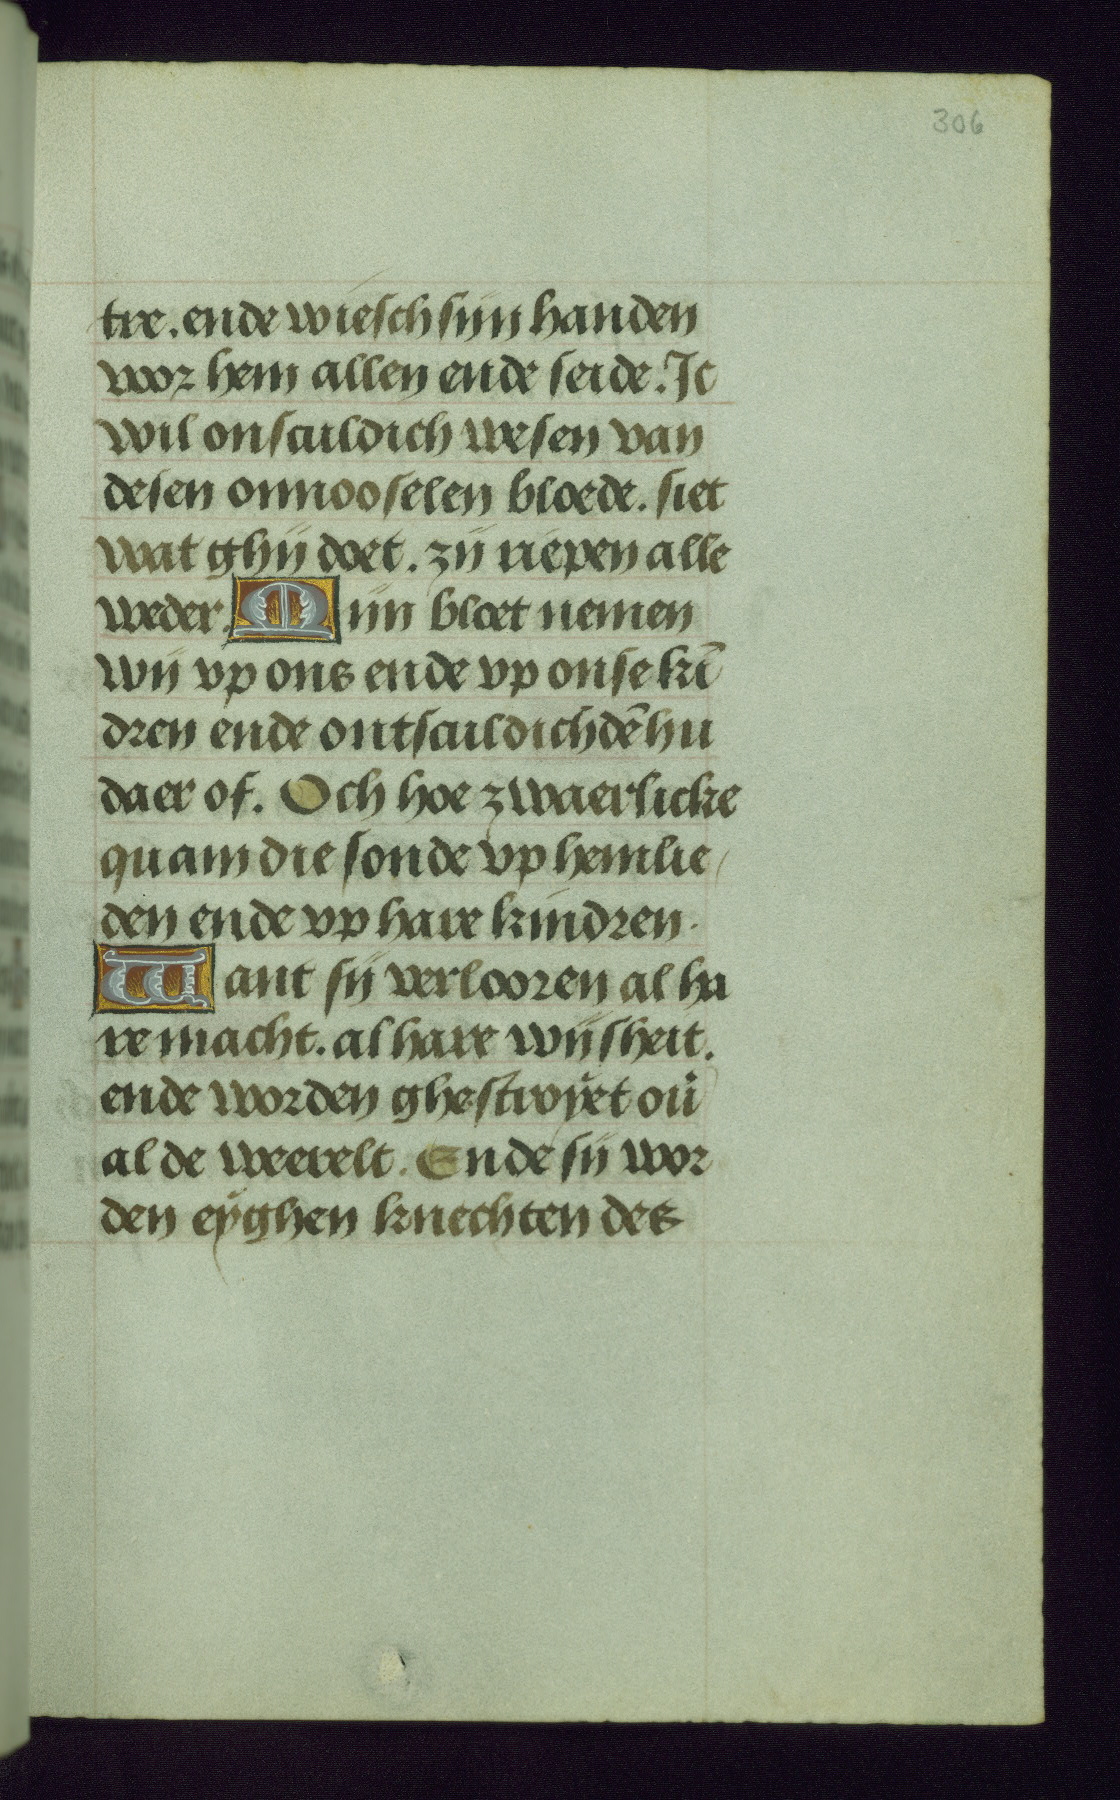 306
tre. ende wiesch sijn handen
voor hem allen ende seide. Ic
wil onsculdich wesen van
desen onnooselen bloede. siet
wat ghij doet. zij riepen alle
weder. Mijn bloet nemen
wij vp ons ende vp onse kī
dren ende ontsculdichdē hu
daer of. Och hoe zwaerlicke
quam die sonde vp hemlie/
den ende vp hare kindren.
Want sij verlooren al ha
re macht. al hare wijsheit.
ende worden ghestroyet ou̾
al de weerelt. Ende sij wor
den eyghen knechten des